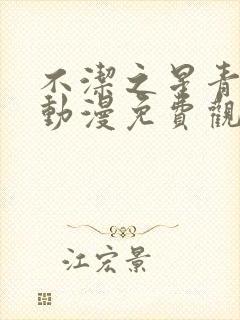 不潔之星青
動漫免費觀
江宏景